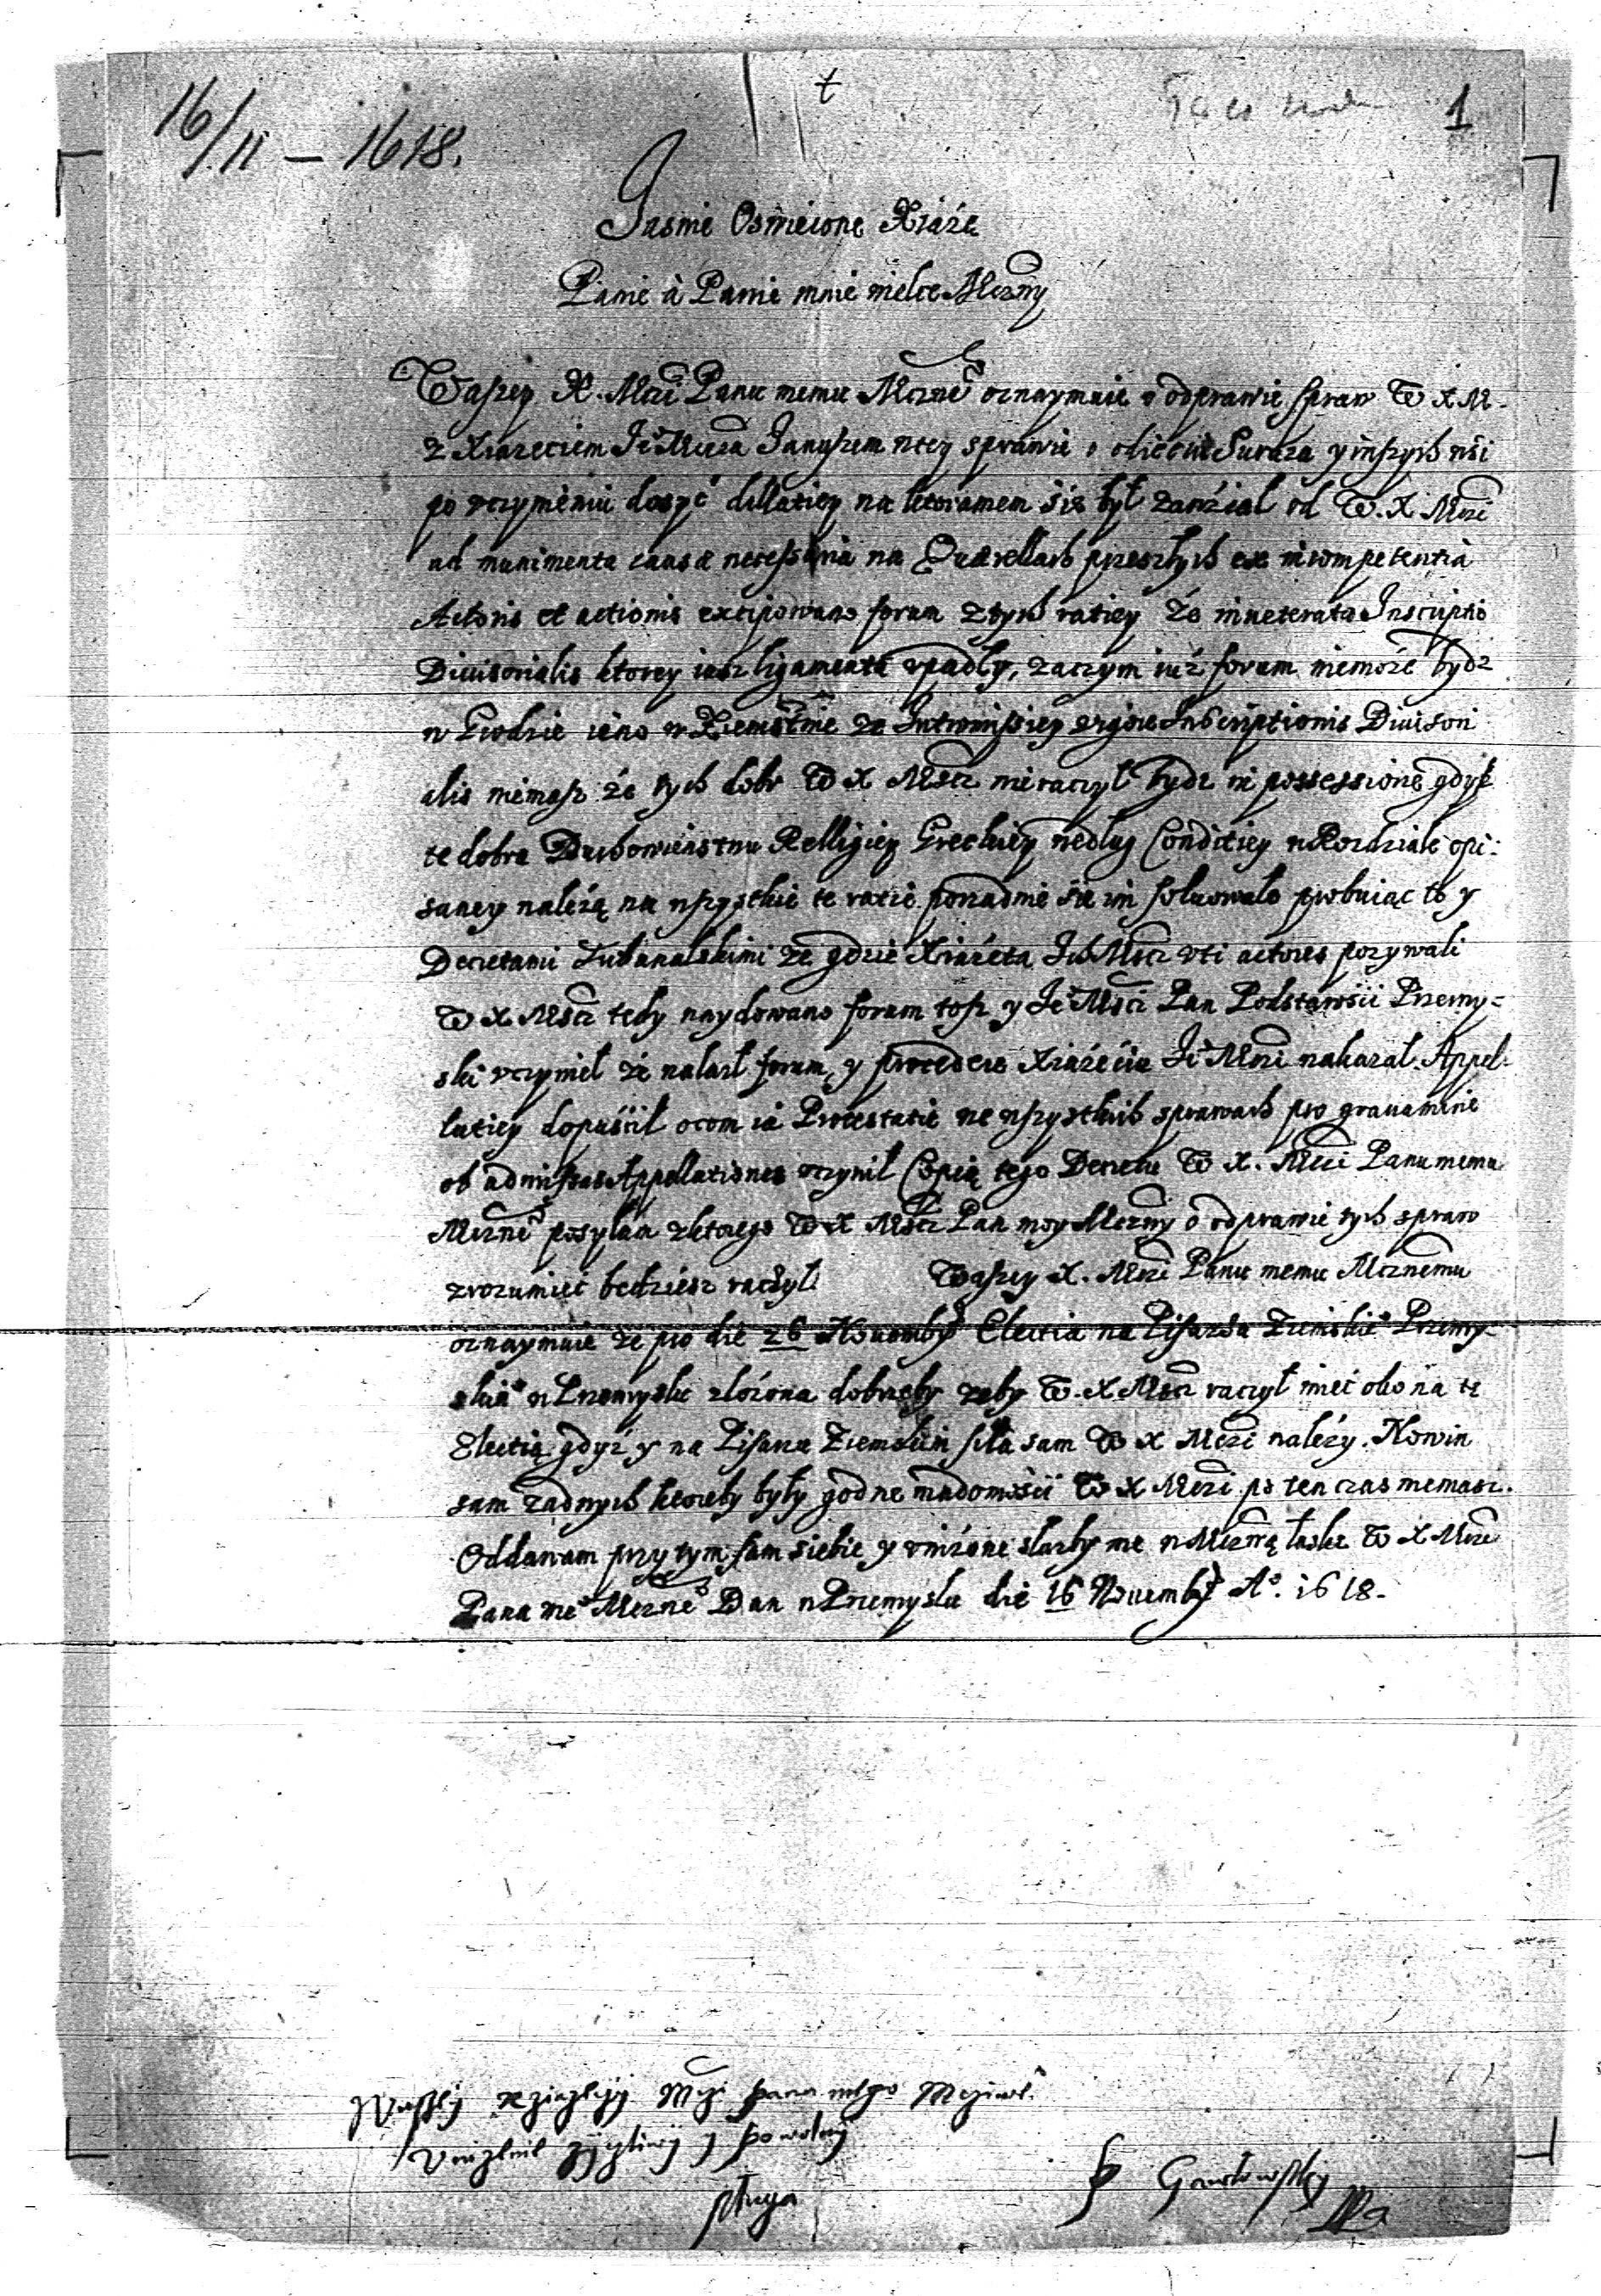 16/11 – 1618.
1
Jasnie Oswiecone Xiąże
Panie à Panie mnie wielce Mczny
Waszey X. Mczi Panu memu Mcznē oznaymuie o odprawie spraw W X M.
z Xiazeciem Je° Mczia Januszem w tey sprawie o odięcie Suraza y inszych wsi
po vczynieniu dosyć dillatiey na ktoramem się był zawział od W. X Mczi
ad munimenta causæ necessaria na Querellach przeszłych ex incompetentia
Actoris et actionis excipowano forum z tych ratiey że inueterata Inscriptio
Diuisorialis ktorey iusz ligamenta vpadły, zaczym iuż forum niemoże bydz
w Grodzie ieno w Ziemstwie ze Intromissiey vigore Inscriptionis Diuisori
alis niemasz że tych dobr W X Mści nieraczył bydz in possessione gdysz
te dobra Duchowienstwu Relligiey Greckiey wedlug Conditiey w Rozdziale opi:
saney należą na wszystkie te ratie porzadnie się im soluowało probuiąc to y
Decretami Tribunalskimi że gdzie Xiażęta Ich Mści vti actores pozywali
W X Mści tedy naydowano forum tosz y Je° Mści Pan Podstarości Przemy=
ski vczynil że nalazł forum, y procedere Xiażęciu Je° Mczi nakazał. Appel-
latiey dopuścił ocom ia Protestatie we wszystkich sprawach pro grauamine
ob admissas Appellationes vczynil Copią tego Decretu W X. Mczi Panu memu
Mcznē posyłam z ktorego W X Mści Pan moy Mczny o odprawie tych spraw
zrozumieć będziesz raczył Waszey X. Mczi Panu memu Mcznemu
oznaymuie że pro die 26 Nouembr Electia na Pisarza Ziemskie° Przemy-
skie° w Przemyslu złożona dobrzeby żeby W. X Mści raczył mieć oko na tę
Electią gdyż y na Pisarzu Ziemskim siła sam W X Mczi należy. Nowin
sam żadnych ktoreby były godne wiadomości W X Mczi po ten czas niemasz.
Oddawam przytym sam siebie y vniżone służby me w Mczną łaskę W X Mczi
Pana me° Mczne° Dan w Przemyslu die 16 Nouembr A°. 1618.
Waszey xziązęcy Mczi pana mego Mcziwe°
vnizenie zyczliwy y powolny
sługa